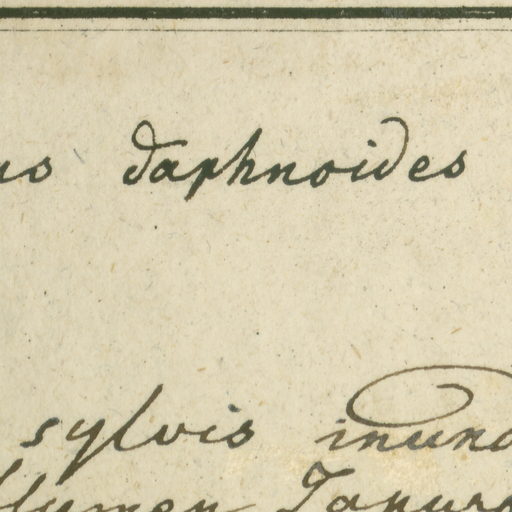 us daphnoides
sylvis inund
flumen Japura